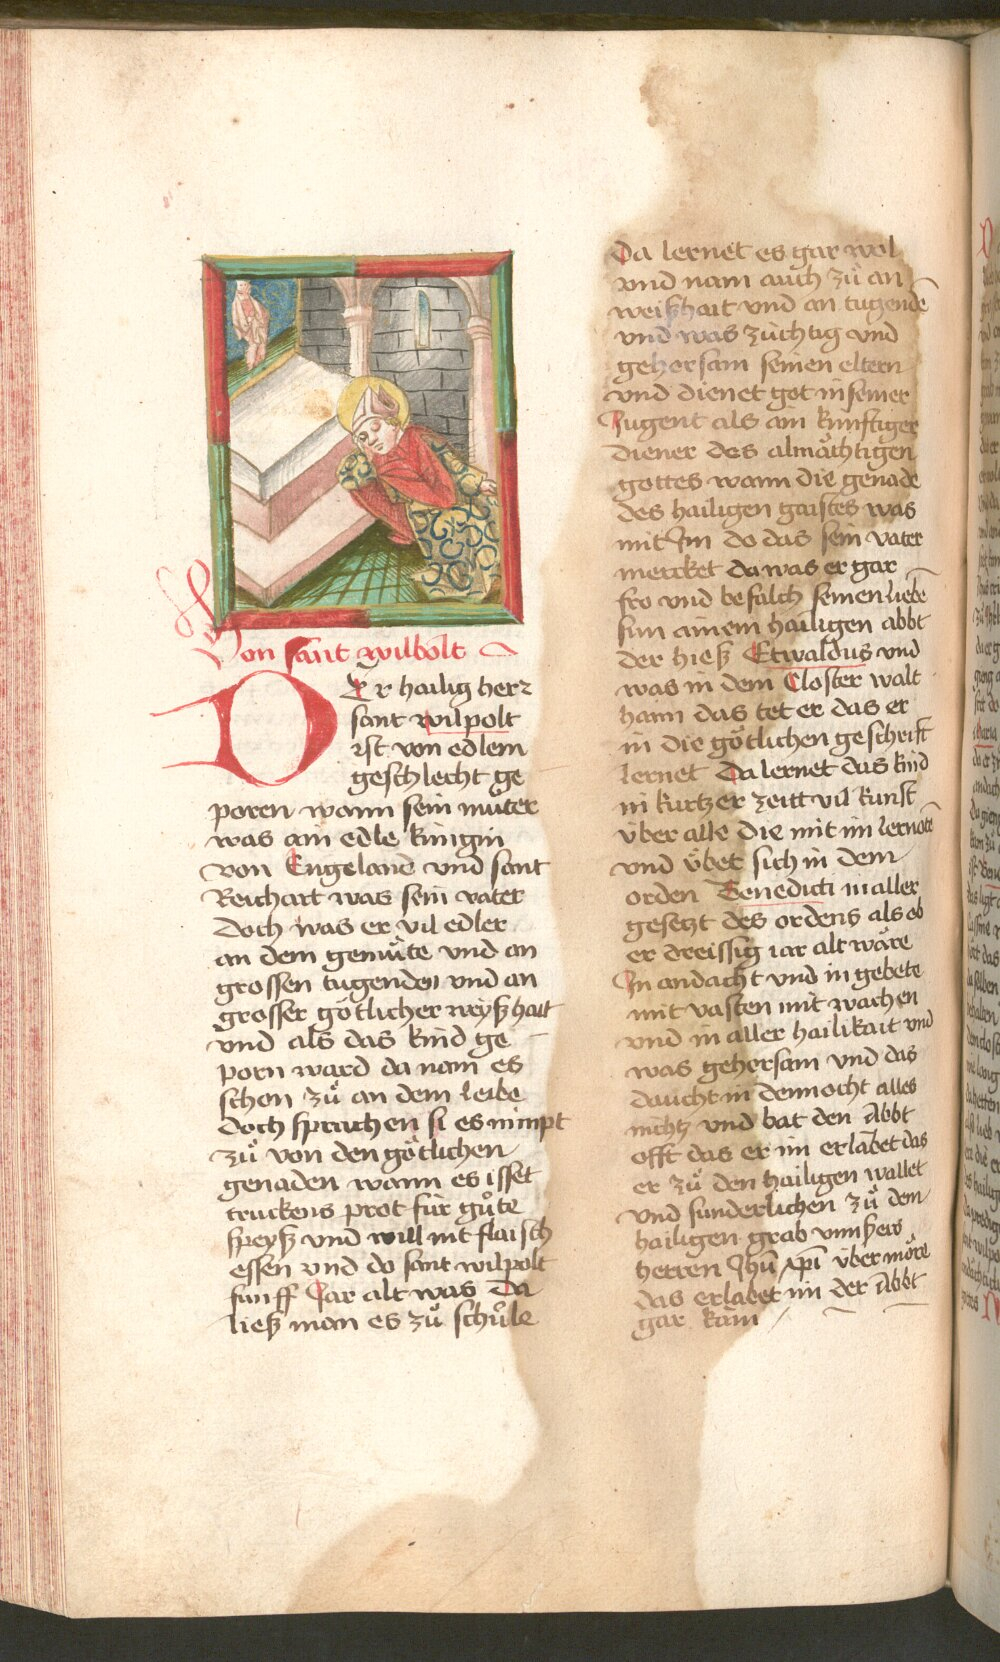 Von sant wilbolt
Der hailig herr
sant wilpolt
ist von edlem
geschlecht ge
poren wann sein muͦter
was ain edle kunigin
von Engeland und sant
Reichart was sein vater
Doch was er vil edler
an dem gemuͤte und an
grossen tugenden und an
grosser goͤtlicher weyßhait
und als das kind ge
porn ward da nam es
schon zuͦ an dem leibe
doch sprachen si es nimpt
zuͦ von den goͤtlichen
genaden wann es isset
truckens prot fuͤr guͦte
speyß und will nit flaisch
essen und do sant wilpolt
funff Jar alt was Da
ließ man es zuͦ schuͦle
Da lernet es gar wol
und nam auch zuͦ an
weißhait und an tugendē
und was zuchtig und
gehorsam seinen eltern
und dienet got in seiner
Jugent als ain kunftiger
diener des almaͤchtigen
gottes wann die genade
des hailigen gaistes was
mit Jm do das sein vater
mercket da was er gar
fro und befalch seinen liebē
sun ainem hailigen abbt
der hieß Etwaldus und
was in dem Closter walt
hann das tet er das er
in die goͤtlichen geschrift
lernet Da lernet das kind
in kurtzer zeitt vil kunst
uͤber alle die mit im lernotē
und uͤbet sich in dem
orden Benedicti in aller
gesetzt des ordens als ob
er dreissig iar alt waͤre
In andacht und in gebete
mit vasten mit wachen
und in aller hailikait und
was gehorsam und das
daucht in dennocht alles
nichtz und bat den Abbt
offt das er im erlabet das
er zuͦ den hailigen wallet
und sunderlichen zuͦ dem
hailigen grab unnsers
herren Jhū xpī uͤber moͤre
das erlabet im der Abbt
gar kām